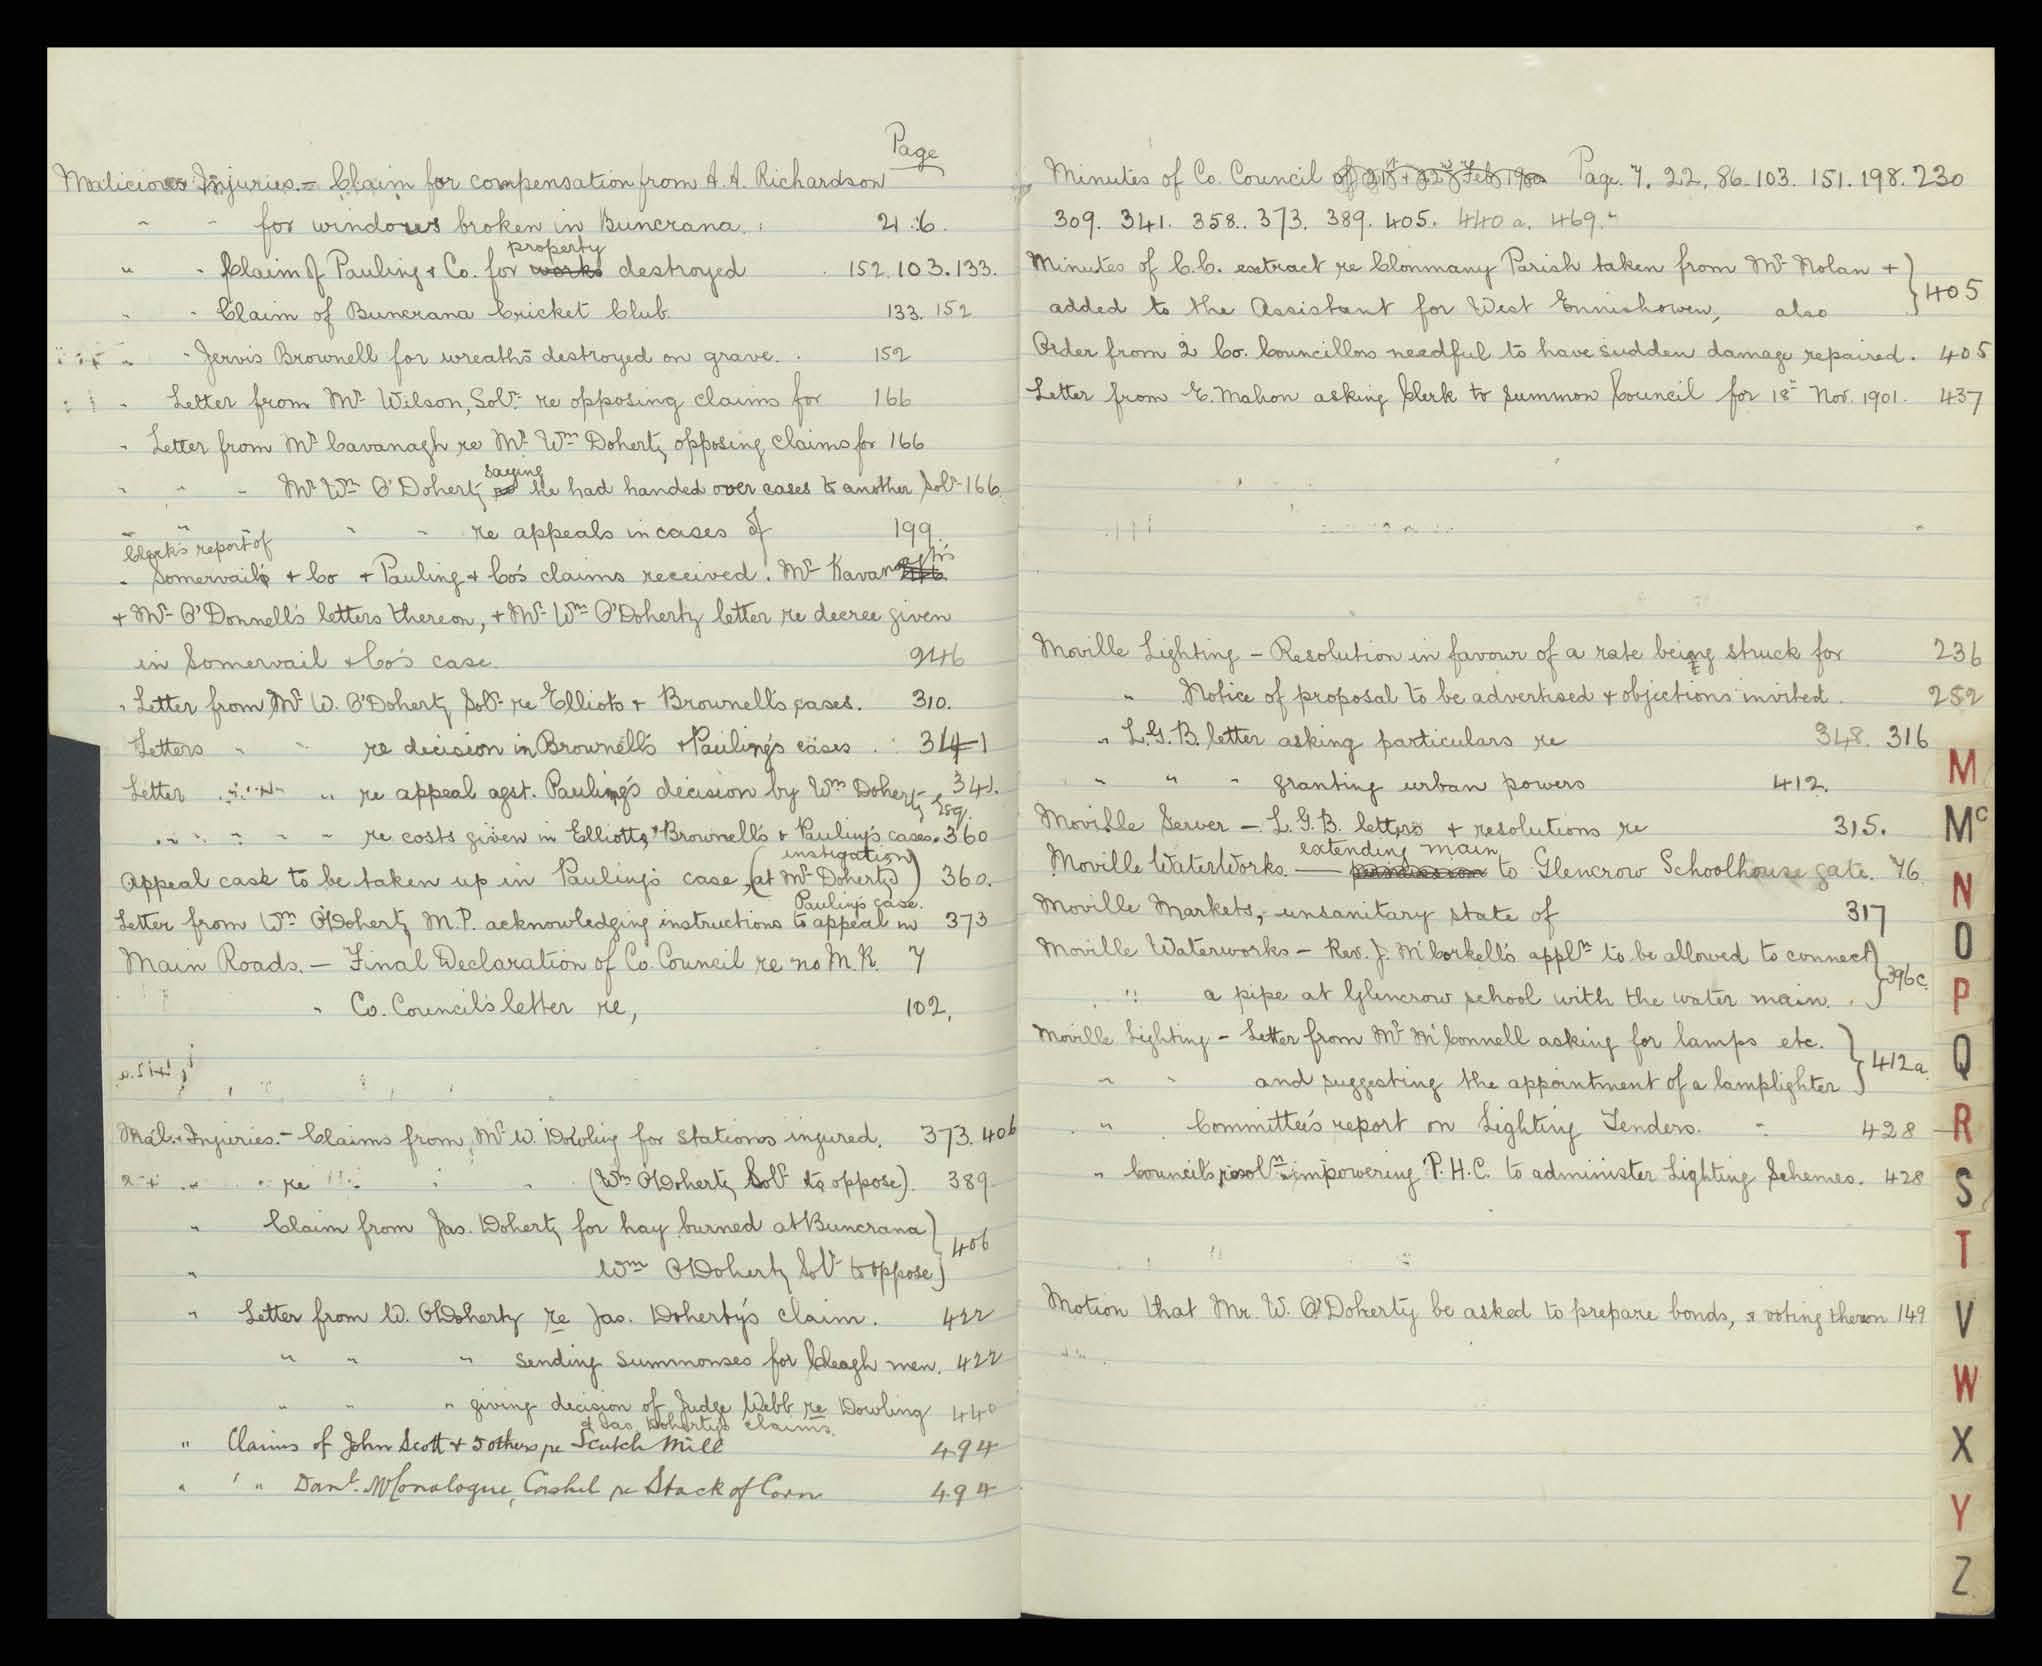 Page
Malicious Injuries. - Claim for compensation from A. A. Richardson
" " for windows broken in Buncrana. 21.
" " Claim of Pauling & Co. for works property destroyed 152. 103. 133.
" " Claim of Buncrana Cricket Club 133. 152
" " Jervis Brownell for wreaths destroyed on grave. 152
" Letter from Mr Wilson, Solr. re opposing claims for 166
" Letter from Mr Cavanagh re Mr Wm Doherty opposing claims for 166
" " " Mr Wm O'Doherty saying he had handed over cases to another Solr 166.
" " " " re appeals in cases of 199.
Clerk's report of
" Somervail & Co + Pauling & Co's claims received. Mr Kavanagh's
+ Mr O'Donnell's letters thereon, + Mr Wm O'Doherty letter re decree given
in Somervail & Co's case. 246
" Letter from Mr W. O'Doherty Solr re Elliots + Brownell's cases. 310.
Letters " " re decision in Brownell's + Pauling's cases. 341
Letter " " " re appeal agst. Pauling's decision by Wm Doherty 341. 389.
" " " " " re costs given in Elliotts, Brownell's & Pauling's cases. 360
Appeal case to be taken up in Pauling's case, (at Mr Doherty's instigation) 360.
Letter from Wm O'Doherty M.P. acknowledging instructions to appeal in Pauling's case. 373
Main Roads. - Final Declaration of Co. Council re no M.R. 7
" Co. Council's letter re, 102,
Mal. Injuries. - Claims from Mr W. Dowling for stations injured. 373. 406
" " re " " (Wm O'Doherty Solr to oppose). 389
" Claim from Jas. Doherty for hay burned at Buncrana } 406
" Wm O'Doherty Solr to oppose }
" Letter from W. O'Doherty re Jas. Doherty's claim. 422
" " " sending summonses for Cleagh men. 422
" " " giving decision of Judge Webb re Dowling 440
& Jas. Doherty's claims.
" Claims of John Scott & 5 others re Scutch Mill 494
" " " Danl. McConalogue, Cashel re Stack of Corn 494
Minutes of Co. Council of 21st + 22nd Feb 1900 Page. 7. 22, 86. 103. 151. 198. 230
309. 341. 358. 373. 389. 405. 440a. 469.
Minutes of C.C. extract re Clonmany Parish taken from Mr Nolan + } 405
added to the Assistant for West Ennishowen, also }
Order from 2 Co. Councillors needful to have sudden damage repaired. 405
Letter from E. Mahon asking Clerk to summon Council for 18th Nov. 1901. 437
Moville Lighting - Resolution in favour of a rate being struck for 236
" Notice of proposal to be advertised & objections invited. 252
" L.G.B. letter asking particulars re 348. 316
" " " granting urban powers 412.
Moville Sewer - L.G.B. letters + resolutions re 315.
Moville WaterWorks. - extending main to Glencrow Schoolhouse gate. 76
Moville Markets, - unsanitary state of 317
Moville Waterworks - Rev. J. McCorkell's appln to be allowed to connect } 396c.
" a pipe at Glencrow school with the water main. }
Moville Lighting - Letter from Mr McConnell asking for lamps etc. } 412a.
" " and suggesting the appointment of a lamplighter }
" Committee's report on Lighting Tenders. 428
" Council's resoln impowering P.H.C. to administer Lighting Schemes. 428
Motion that Mr. W. O'Doherty be asked to prepare bonds, & voting thereon 149
M
Mc
N
O
P
Q
R
S
T
V
W
X
Y
Z